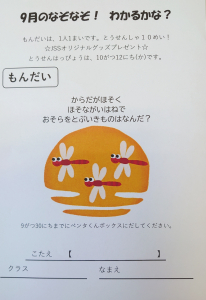 9月のなぞなぞ！ わかるかな？
もんだいは、1人1まいです。とうせんしゃ10めい！
☆JSSオリジナルグッズプレゼント☆
とうせんはっぴょうは、10がつ12にち(か)です。
もんだい
からだがほそく
ほそながいはねで
おそらをとぶいきものはなんだ？
9がつ30にちまでにペンタくんボックスにだしてください。
こたえ 【 】
クラス なまえ